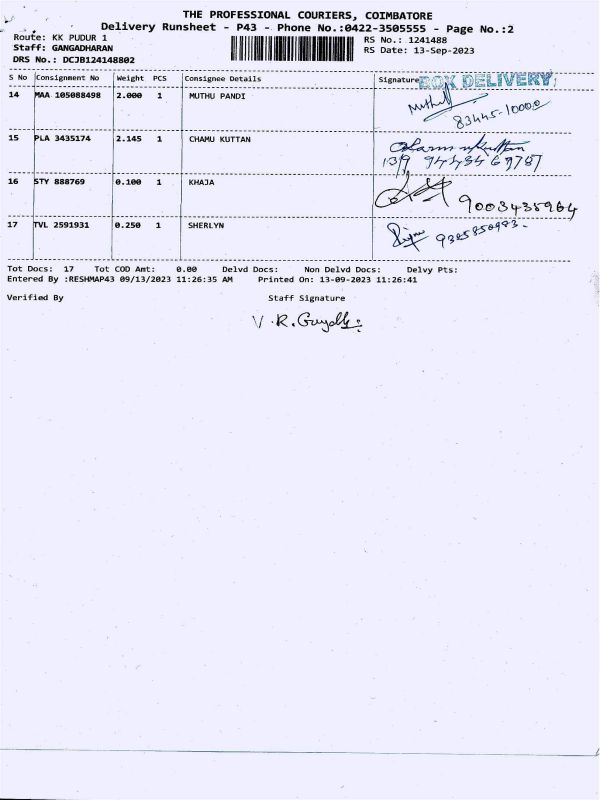 THE PROFESSIONAL COURIERS, COIMBATORE
Delivery Runsheet - P43 - Phone No.:0422-3505555 - Page No.:2
Route: KK PUDUR 1 RS No.: 1241488
Staff: GANGADHARAN RS Date: 13-Sep-2023
DRS No.: DCJB124148802
S No Consignment No Weight PCS Consignee Details Signature BOX DELIVERY
14 MAA 105088498 2.000 1 MUTHU PANDI
83445-10000
15 PLA 3435174 2.145 1 CHAMU KUTTAN
13/9 9443469787
16 STY 888769 0.100 1 KHAJA
9003435964
17 TVL 2591931 0.250 1 SHERLYN
Tot Docs: 17 Tot COD Amt: 0.00 Delvd Docs: Non Delvd Docs: Delvy Pts:
Entered By :RESHMAP43 09/13/2023 11:26:35 AM Printed On: 13-09-2023 11:26:41
Verified By Staff Signature